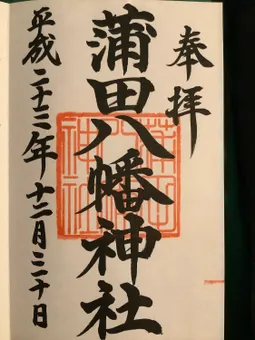 奉拝
蒲田八幡神社
平成二十三年十二月三十日